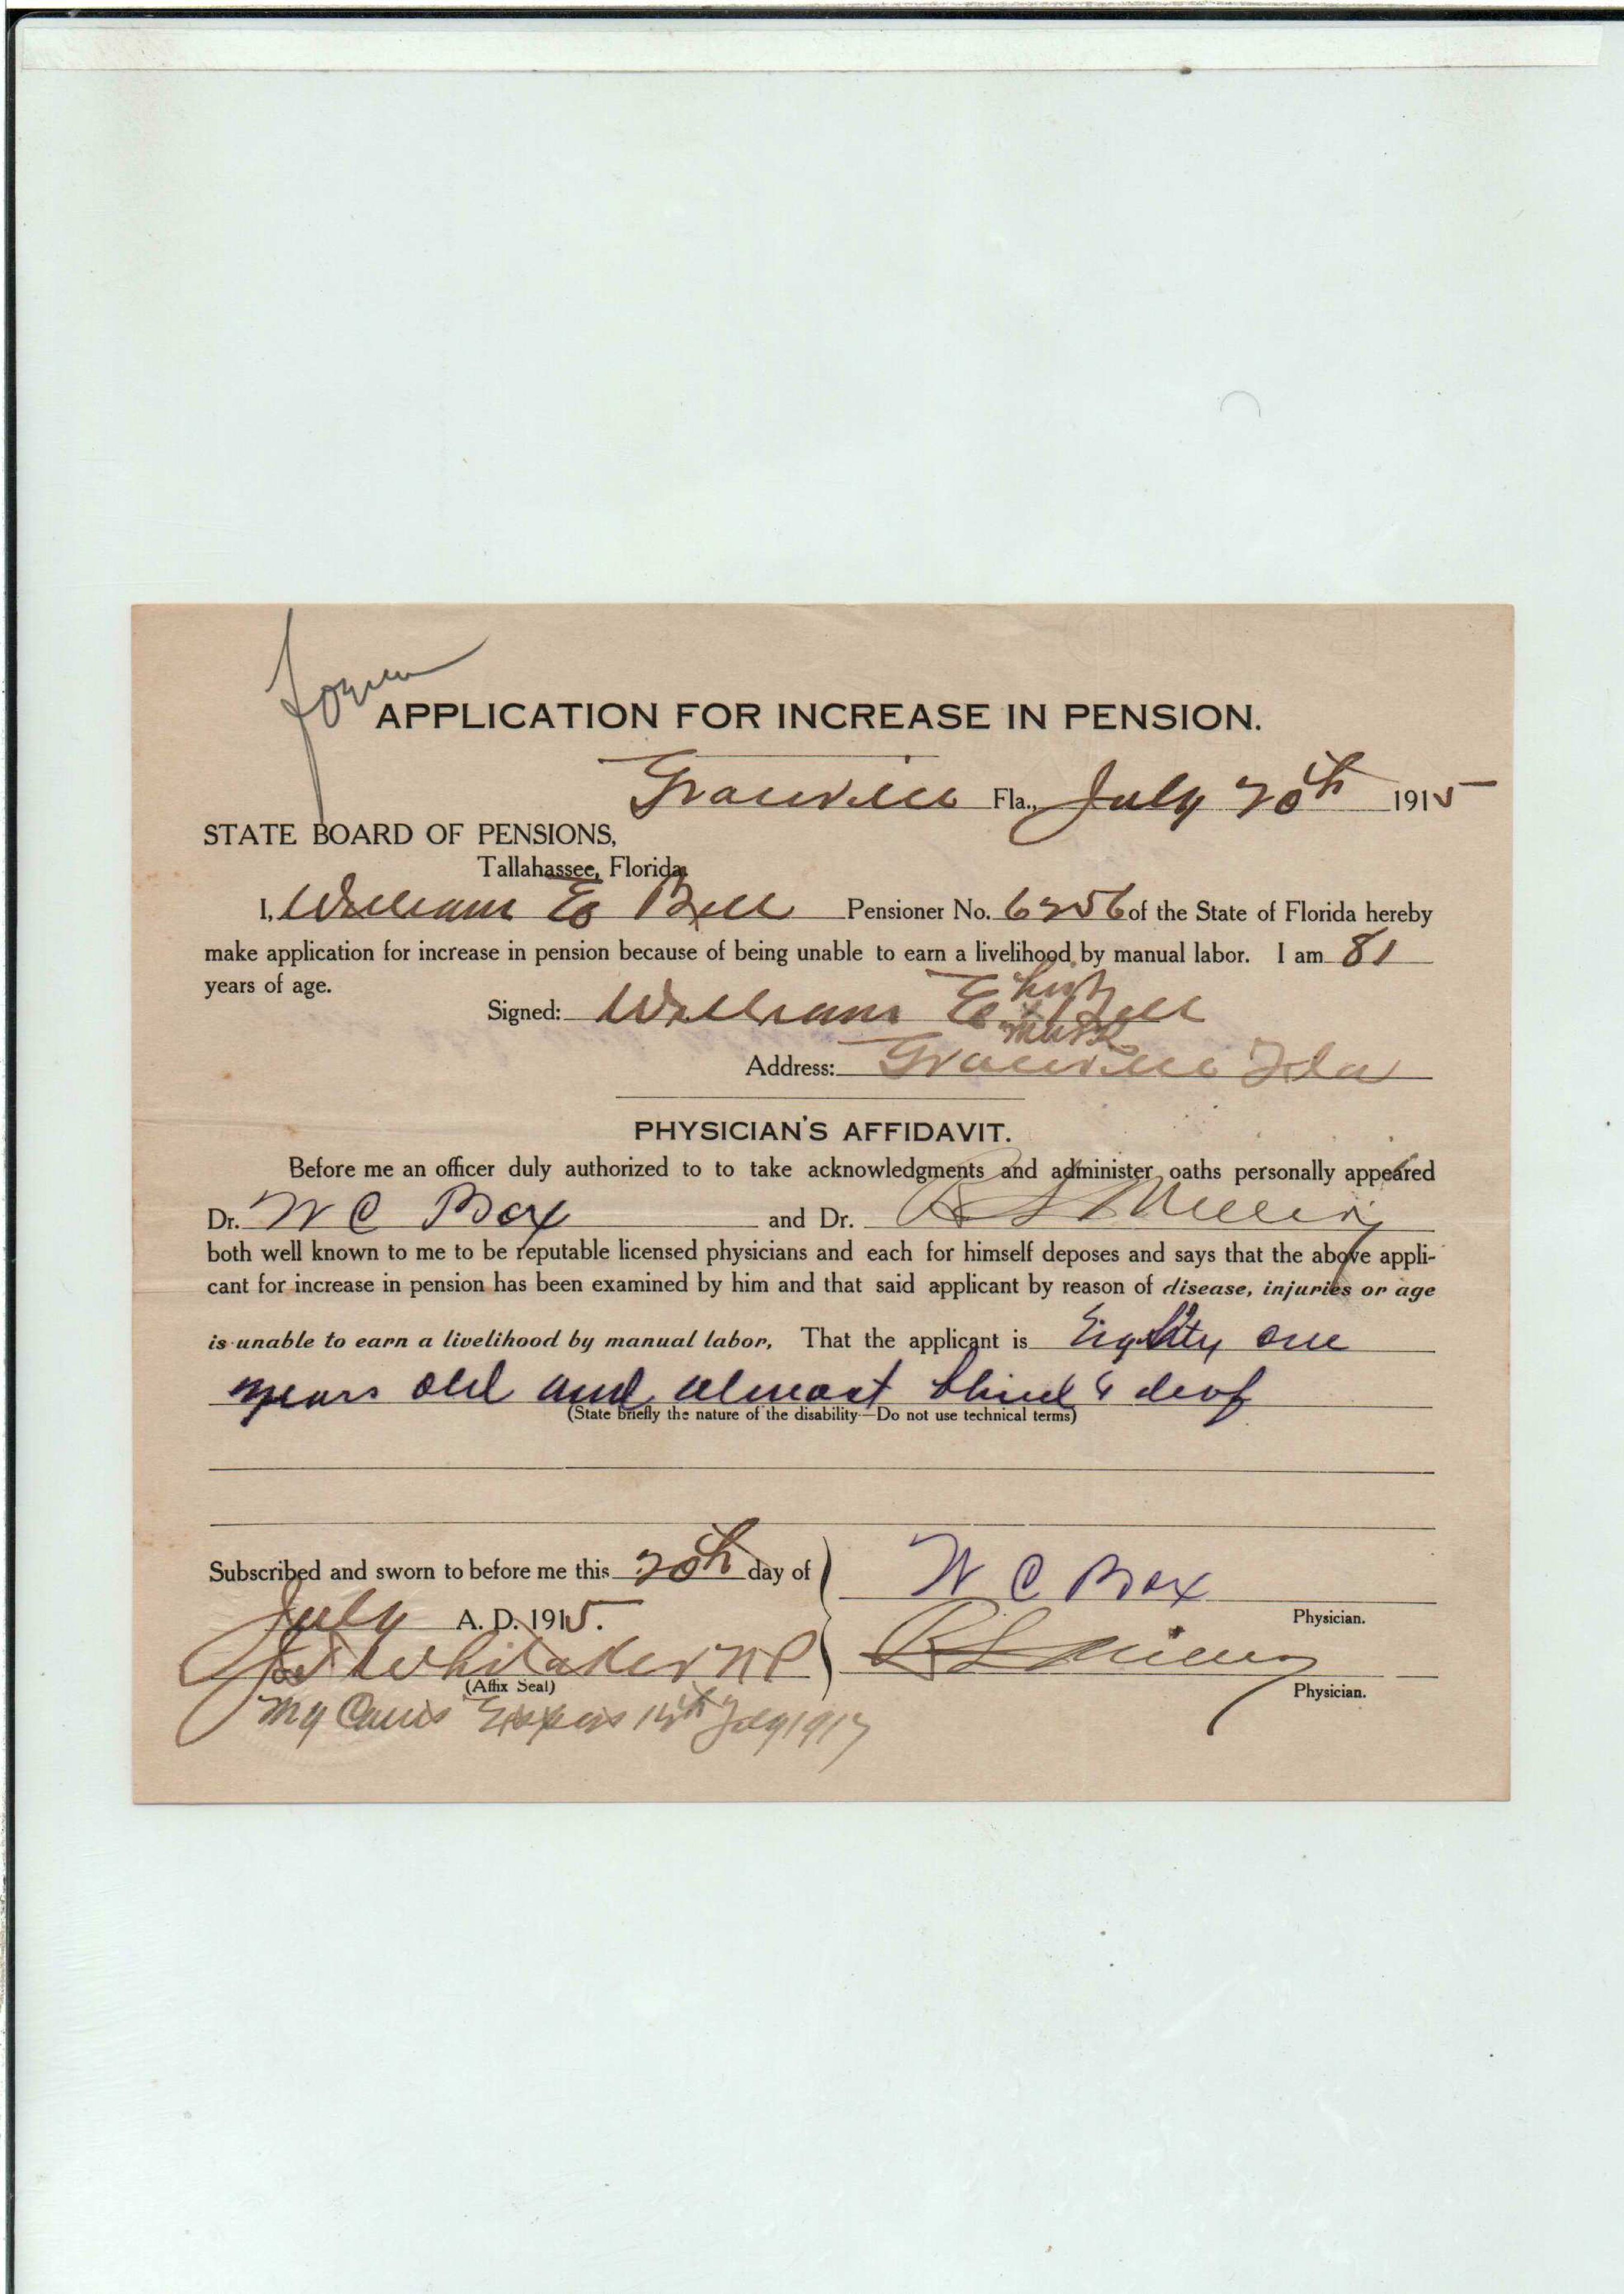 APPLICATION FOR INCREASE IN PENSION.
Graceville Fla., July 20th 1915
STATE BOARD OF PENSIONS,
Tallahassee, Florida,
I, William E Bell Pensioner No. 6256 of the State of Florida hereby
make application for increase in pension because of being unable to earn a livelihood by manual labor. I am 81
years of age.
his
Signed: William E x Bell
mark
Address: Graceville Fla
PHYSICIAN'S AFFIDAVIT.
Before me an officer duly authorized to to take acknowledgments and administer oaths personally appeared
Dr. W C Box and Dr. R L Miller
both well known to me to be reputable licensed physicians and each for himself deposes and says that the above appli-
cant for increase in pension has been examined by him and that said applicant by reason of disease, injuries or age
is unable to earn a livelihood by manual labor, That the applicant is Eighty one
years old and almost blind & deaf
(State briefly the nature of the disability—Do not use technical terms)
Subscribed and sworn to before me this 20th day of
July A. D. 1915.
W C Box
Physician.
Whitaker NP
R L
(Affix Seal)
Physician.
My Expires 1917